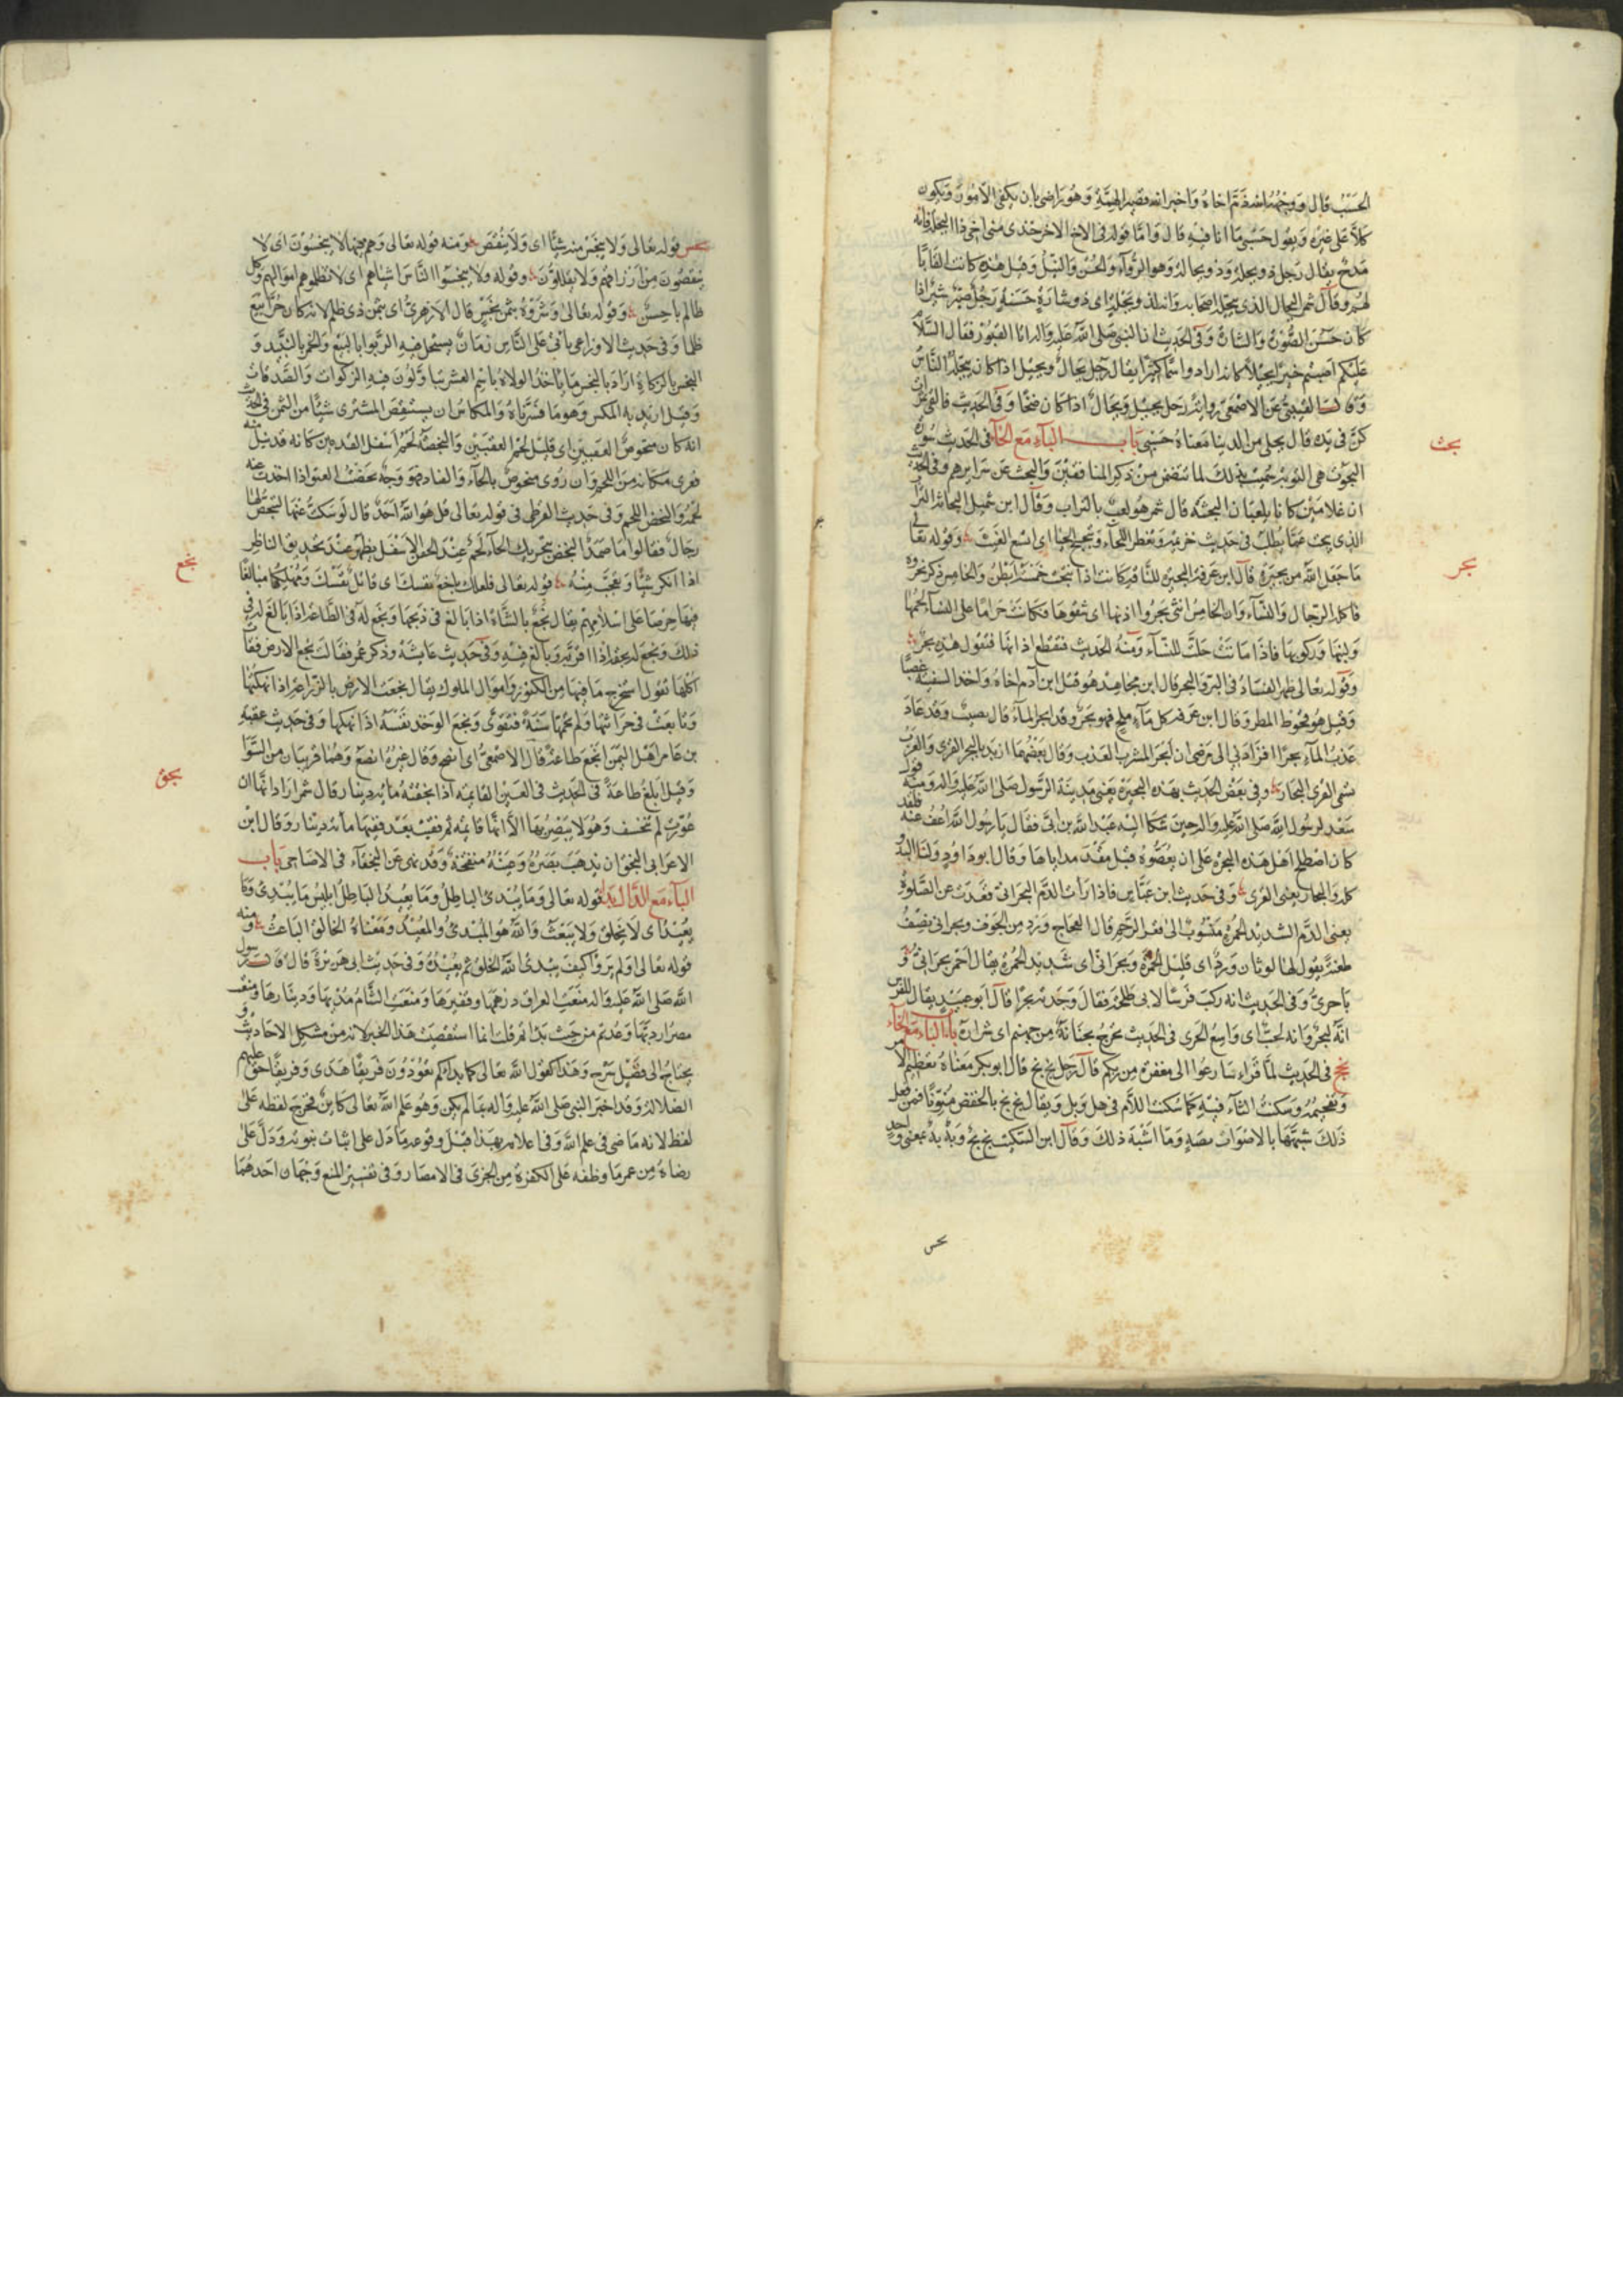 الحسب قال ووجهه انه ذم اخاه واخبر انه قصير الهمة وهو راضى بان يكفى الامور ويكون
كلا على غيره ويقول حسبى ما انا فيه قال واما قوله فى الاخ الاخر خذى منى اخى ذا البجلة فانه
مدح يقال رجل ذو بجلة وذو بجالة وهو الرواء والحسن والنبل وقيل هذه كانت القابا
لهم وقال شمر البجال الذى يبجله اصحابه وانه لذو بجلة اى ذو شارة حسنة ورجل
كان حسن الصورة والشارة وفى الحديث ان النبى صلى الله عليه واله اتى القبور فقال السلام
عليكم اصبتم خيرا بجيلا كانه اراد واسعا كثيرا يقال رجل بجال وبجيل اذا كان يبجله الناس
وقالت القتيبى عن الاصمعى وانه رجل بجيل وبجال اذا كان ضخما وفى الحديث فالقى تمرات
كن فى يده قال بجلى من الدنيا معناه حسبى باب الباء مع الحاء فى الحديث سورة
بحث
البحوث هى التوبة سميت بذلك لما تتضمن من ذكر المنافقين والبحث عن سرايرهم وفى الحديث
ان غلامين كانا يلعبان البحثة قال شمر هو لعب بالتراب وقال ابن شميل البحاثة التراب
الذى يبحث عما يطلب فى حديث خزيمة وتقطر اللحاء وتبحبح الحيا اى اتسع الغيث وقوله تعالى
بحر
ما جعل الله من بحيرة قال ابن عرفة البحيرة للناقة كانت اذا نتجت خمسة ابطن والخامس ذكر نحروه
فاكله الرجال والنساء وان الخامس انثى بحروا اذنها اى شقوها فكانت حراما على النساء لحمها
ولبنها وركوبها فاذا ماتت حلت للنساء ومنه الحديث فتقطع اذانها فتقول هذه بحر
وقوله تعالى ظهر الفساد فى البر والبحر قال ابن مجاهد هو قتل ابن آدم اخاه واخذ السفينة غصبا
وقيل هو قحوط المطر وقال ابن عرفة كل ماء ملح فهو بحر وقد ابحر الماء قال نصيب وقد عاد
عذب الماء بحرا فزادنى الى مرضى ان ابحر المشرب العذب وقال بعضهما اريد بالبحر القرى والعرب
تسمى القرى البحار وفى بعض الحديث بهذه البحيرة يعنى مدينة الرسول صلى الله عليه واله ومنه قول
سعد لرسول الله صلى الله عليه واله حين شكا اليه عبد الله بن ابى فقال يا رسول الله اعف عنه فلقد
كان اصطلح اهل هذه البحرة على ان يعصبوه قبل مقدمه اياها وقال ابو داود ولنا البدو
كله والبحار يعنى القرى وفى حديث ابن عباس فاذا رأت الدم البحرانى فقعدت عن الصلوة
يعنى الدم الشديد الحمرة منسوب الى قعر الرحم قال العجاج وورد من الجوف وبحرانى يصف
طعنة يقول لها لونان ورد اى قليل الحمرة وبحرانى اى شديد الحمرة يقال احمر بحرانى و
باحرى وفى الحديث انه ركب فرسا لابى طلحة فقال وجدته بحرا قال ابو عبيد يقال للفرس
انه لبحر وانه لحت اى واسع الجرى فى الحديث تخرج بحنانة من جهنم اى شرارة باب الباء مع الخاء
بخ فى الحديث لما قراء سارعوا الى مغفرة من ربكم قال رجل بخ بخ قال ابو بكر معناه تعظيم الامر
وتفخيمه وسكنت الخاء فيه كما سكنت اللام فى هل وبل ويقال بخ بخ بالخفض منونا فمن فعل
ذلك شبهها بالاصوات بصه وما اشبه ذلك وقال ابن السكيت بخ بخ وبه به بمعنى واحد
بخس
بخس قوله تعالى ولا يبخس منه شيئا اى ولا ينقص ومنه قوله تعالى وهم فيها لا يبخسون اى لا
ينقصون من ارزاقهم ولا يقللون وقوله ولا تبخسوا الناس اشياءهم اى لا تظلموهم اموالهم وكل
ظالم باخس وقوله تعالى وشروه بثمن بخس قال الازهرى اى بثمن ذى ظلم لانه كان حرا بيع
ظلما وفى حديث الاوزاعى يأتى على الناس زمان يستحل فيه الربوا بالبيع والخمر بالنبيذ و
البخس بالزكاة اراد بالبخس ما ياخذ الولاة باسم العشر يتأولون فيه الزكوات والصدقات
وقيل اريد به المكس وهو ما فسرناه والمكاس ان يستنقص المشترى شيئا من الثمن فى الحديث
انه كان مبخوص العقبين اى قليل لحم العقبين والبخصة لحم اسفل القدمين كانه قد نيل منه
فعرى مكانه من اللحم وان روى منحوض بالحاء والضاد فهو وجه نحضت العظم اذا اخذت عنه
لحمه والنحض اللحم وفى حديث القرظى فى قوله تعالى قل هو الله احد قال لو سكت عنها لتبخص لها
رجال فقالوا ما صمد البخص بتحريك الخاء لحم عند الجفن الاسفل يظهر عند تحديق الناظر
بخع
اذا انكر شيئا وتعجب منه قوله تعالى فلعلك باخع نفسك اى قاتل نفسك ومهلكها مبالغا
فيها حرصا على اسلامهم يقال بخع بالشاة اذا بالغ فى ذبحها وبخع له فى الطاعة اذا بالغ له فى
ذلك وبخع له بحقه اذا اقر به وبالغ فيه وفى حديث عايشة وذكر عمر فقالت بخع الارض فقاءت
اكلها تقول استخرج ما فيها من الكنوز واموال الملوك يقال بخعت الارض بالزراعة اذا نهكتها
وتابعت فى حراثتها ولم تجمها سنة فتقوى وبخع الوجد نفسه اذا نهكها وفى حديث عقبة
بن عامر اهل اليمن ابخع طاعة قال الاصمعى اى انصح وقال غيره انصع وهما قريبان من السوا
بخق
وقيل ابلغ طاعة فى الحديث فى العين القائمة اذا بخقت مائة دينار قال شمر اراد انها ان
عورت لم تخسف وهو لا يبصر بها الا انها قايمة ثم فقئت بعد ففيها مائة دينار وقال ابن
الاعرابى البخق ان يذهب بصره وعينه منفتحة وقد نهى عن البخقاء فى الاضاحى باب
الباء مع الدال بدا قوله تعالى وما يبدئ الباطل وما يعيد الباطل ابليس ما يبدئ وما
يعيد اى لا يخلق ولا يبعث والله هو المبدئ والمعيد ومعناه الخالق الباعث ومنه
قوله تعالى اولم يروا كيف يبدئ الله الخلق ثم يعيده وفى حديث ابى هريرة قال قال رسول
الله صلى الله عليه واله منعت العراق درهمها وقفيزها ومنعت الشام مديها ودينارها ومنعت
مصر اردبها وعدتم من حيث بدأتم قلت انما استقصيت هذا الخبر لانه من مشكل الاحاديث و
يحتاج الى فضل شرح وهذا كقول الله تعالى كما بداكم تعودون فريقا هدى وفريقا حق عليهم
الضلالة وقد اخبر النبى صلى الله عليه وآله بما لم يكن وهو علم الله تعالى كاين فخرج لفظه على
لفظ لانه ماضى فى علم الله وفى اعلامه بهذا قبل وقوعه ما دل على اثبات نبوته ودل على
رضاه من عمر ما وظفه على الكفرة من الجزى فى الامصار وفى تفسير المنع وجهان احدهما